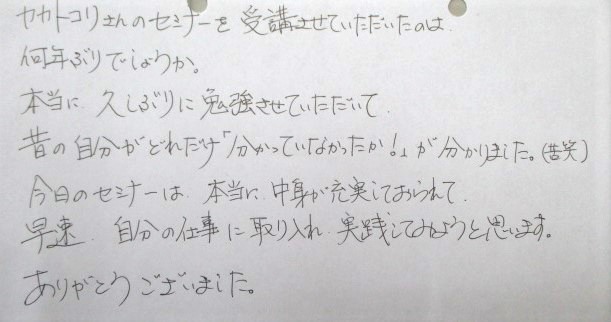 ヤカトコリさんのセミナーを受講させていただいたのは
何年ぶりでしょうか。
本当に久しぶりに勉強させていただいて
昔の自分がどれだけ「分かっていなかったか!」が分かりました。(苦笑)
今日のセミナーは、本当に中身が充実しておられて
早速、自分の仕事に取り入れ、実践してみようと思います。
ありがとうございました。